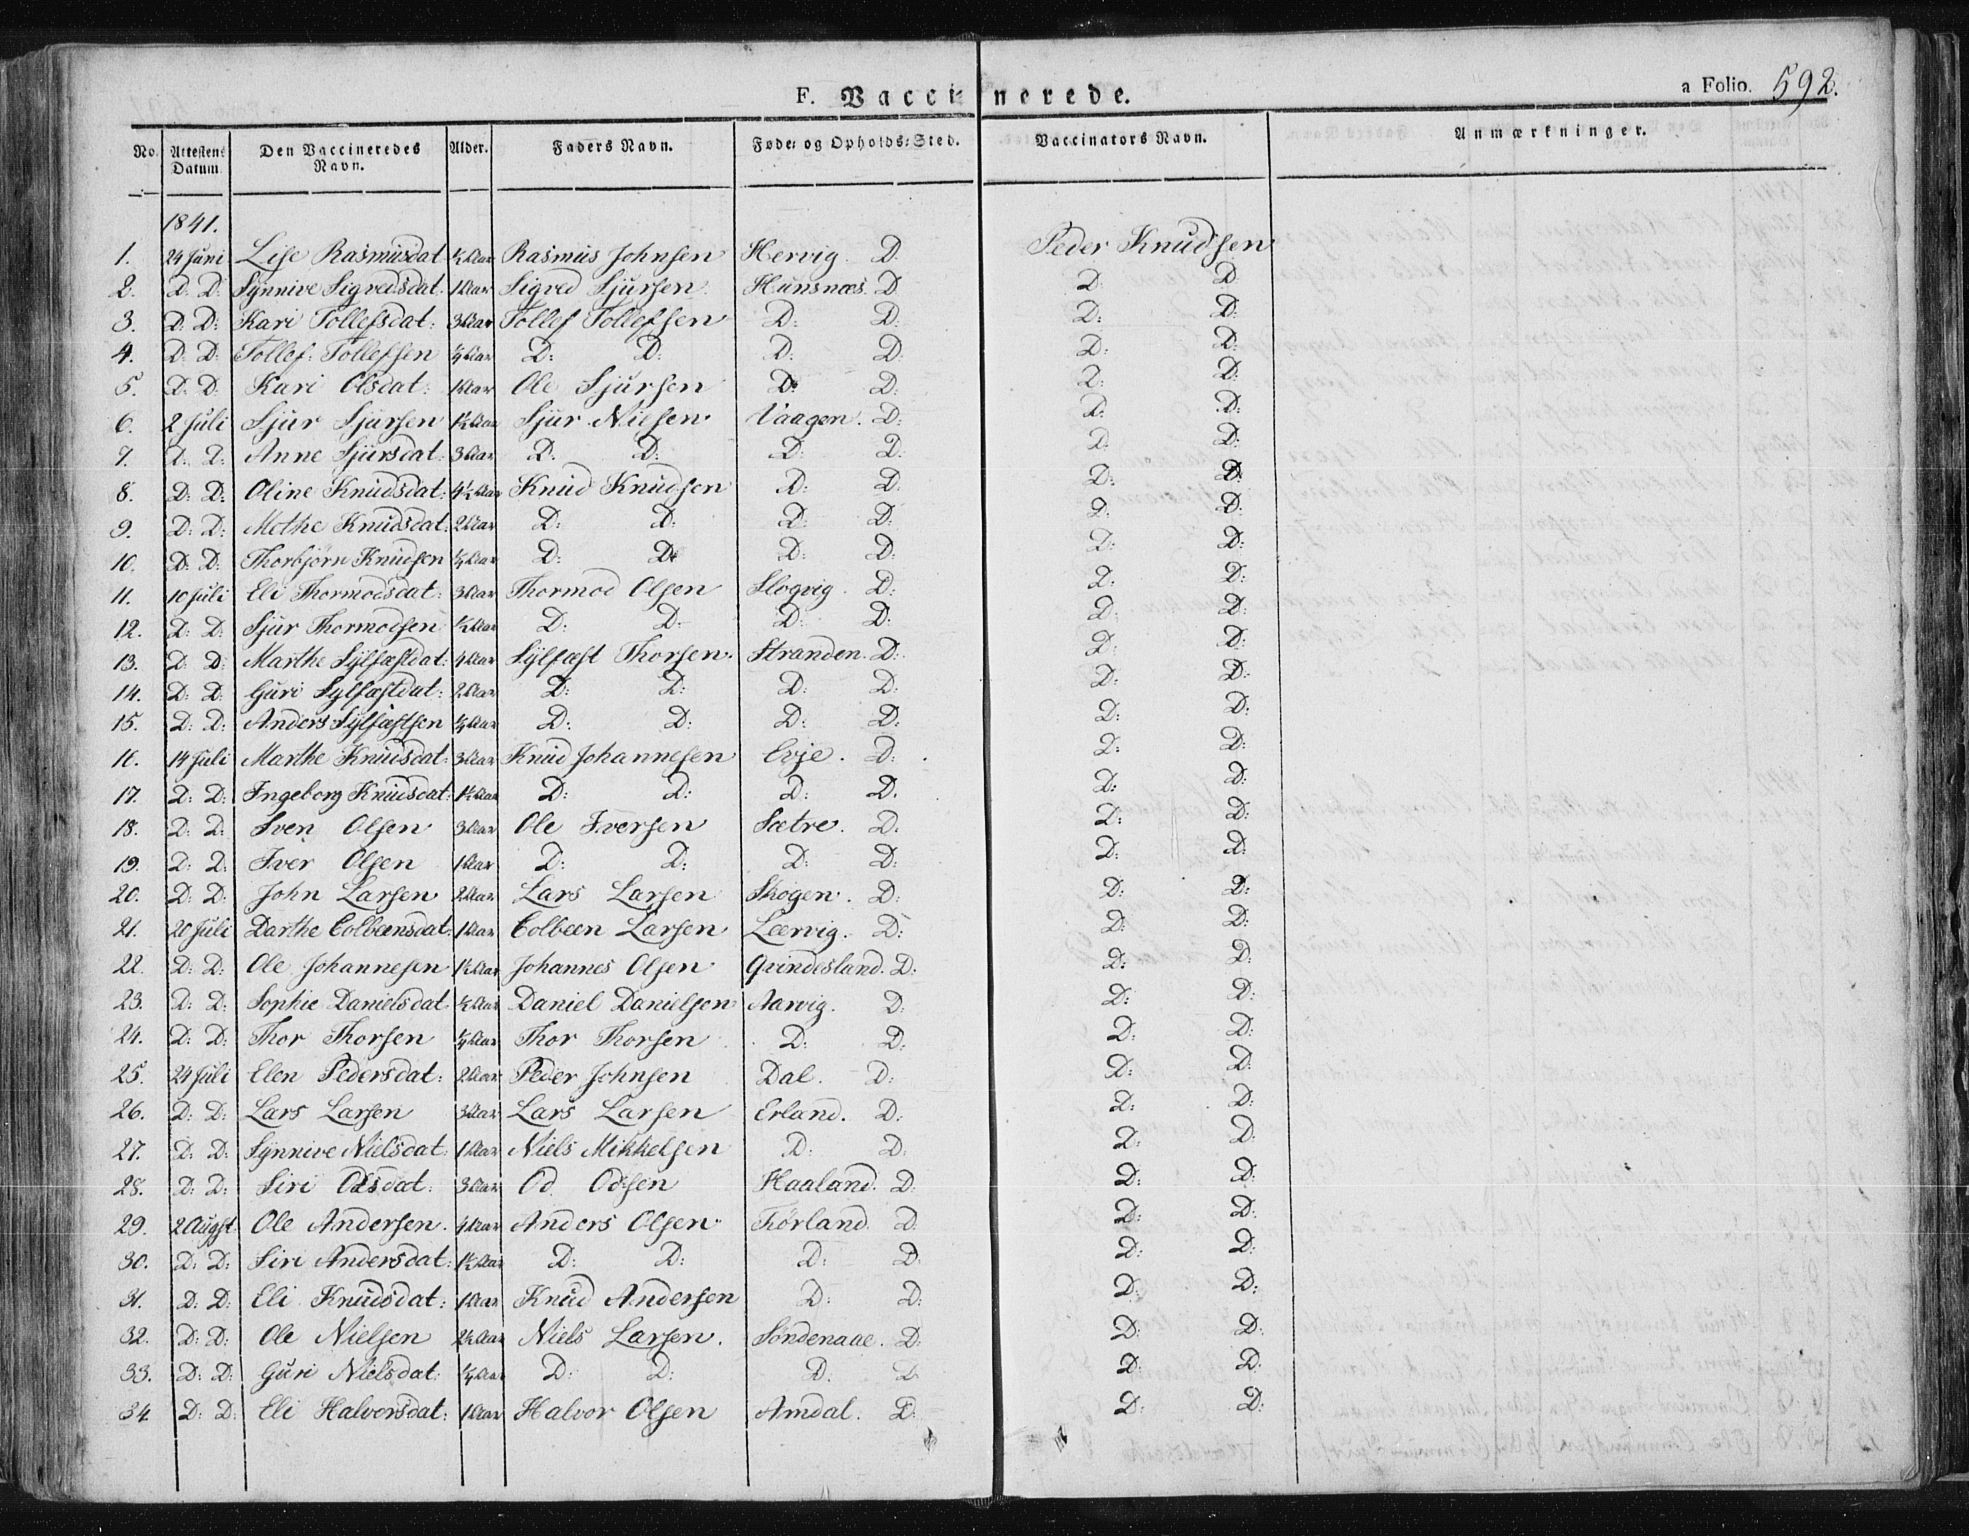 F. Vaccinerede. a Folio. 592.
No. Attestens Datum. Den Vaccineredes Navn. Alder. Faders Navn. Føde- og Opholds-Sted. Vaccinators Navn. Anmærkninger.
1841.
1. 24 Juni Lise Rasmusdat ½ Aar Rasmus Johnsen Hervig. D. Peder Knudsen
2. D: D: Synnive Sigvedsdat: 1 Aar Sigved Sjursen Hunsnæs. D D: D
3. D: D: Kari Tollefsdat: 3 Aar Tollef Tollefsen D: D: D: D:
4. D: D: Tollef: Tollefsen ¼ Aar D: D: D: D: D: D:
5. D: D: Kari Olsdat: 1 Aar Ole Sjursen D: D: D: D:
6. 2 Juli Sjur Sjursen 1½ Aar Sjur Nielsen Vaagen. D: D: D:
7. D: D: Anne Sjursdat: 3 Aar D: D: D: D: D: D:
8. D: D: Oline Knudsdat: 4½ Aar Knud Knudsen D: D: D: D:
9. D: D: Methe Knudsdat: 2 Aar D: D: D: D: D: D:
10. D: D: Thorbjörn Knudsen ¼ Aar D: D: D: D: D: D:
11. 10 Juli Eli Thormodsdat: 3 Aar Thormod Olsen Slogvig. D: D: D:
12. D: D: Sjur Thormodsen ½ Aar D: D: D: D: D: D:
13. D D: Marthe Sylfæstdat: 4 Aar Sylfæst Thorsen. Stranden. D: D: D:
14. D: D: Guri Sylfæstdat: 2 Aar D: D: D: D: D: D:
15. D: D: Anders Sylfæstsen ¼ Aar D: D: D: D: D: D:
16. 14 Juli Marthe Knudsdat: 3 Aar Knud Johannesen Evje. D: D: D:
17. D: D: Ingeborg Knudsdat: 1½ Aar D: D: D: D. D: D:
18. D: D: Sven Olsen 3 Aar Ole Iversen Sætre. D. D: D:
19. D: D: Iver Olsen 1 Aar D: D: D: D: D: D:
20. D: D: John Larsen 2 Aar Lars Larsen Skogen. D: D: D:
21. 20 Juli Darthe Colbeensdat: 1 Aar Colbeen Larsen Lærvig. D: D: D:
22. D: D: Ole Johannesen 1½ Aar Johannes Olsen Qvindesland. D: D: D:
23. D: D: Sophie Danielsdat ½ Aar Daniel Danielsen Aarvig. D: D: D:
24. D: D: Thor Thorsen ¼ Aar Thor Thorsen D: D: D: D:
25. 24 Juli Elen Pedersdat: 2 Aar Peder Johnsen Dal. D: D: D:
26. D: D: Lars Larsen 3 Aar Lars Larsen Erland. D: D: D:
27. D: D: Synnive Nielsdat: 1 Aar Niels Mikkelsen D: D: D: D:
28. D: D: Siri Odsdat: 3 Aar Od Odsen Haaland. D: D: D:
29. 2 Augst. Ole Andersen. 4 Aar Anders Olsen Førland. D D: D:
30. D: D: Siri Andersdat: 1½ Aar D: D: D: D: D: D:
31. D: D: Eli Knudsdat: 1 Aar Knud Andersen D: D: D: D:
32. D: D: Ole Nielsen 2½ Aar Niels Larsen. Søndenaae. D: D: D:
33. D: D: Guri Nielsdat: ¼ Aar D: D: D: D: D: D:
34. D: D: Eli Halvorsdat: 1 Aar Halvor Olsen Amdal. D: D: D: